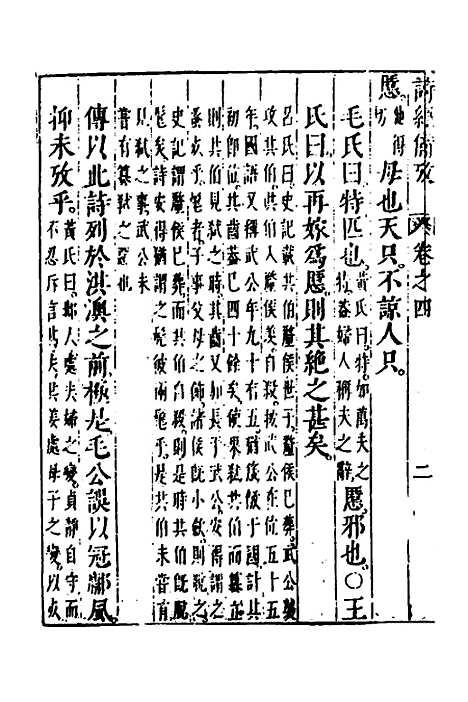 詩經備攷 卷之四 二
慝。他得切 母也天只。不諒人只。
毛氏曰特匹也。黃氏曰。特如萬夫之特。蓋婦人稱夫之辭。慝。邪也。〇王
氏曰以再嫁爲慝。則其絕之甚矣。
呂氏曰。史記載共伯釐侯世子。釐侯已葬。武公襲
攻共伯。共伯入釐侯羨自殺。按武公在位五十五
年。國語又稱武公年九十有五。猶箴儆于國。計其
初卽位。其齒蓋已四十餘矣。使果弑共伯而篡立
則共伯見弑之時。其齒又長于武公。安得謂之
蚤死乎。髦者。子事父母之飾。諸侯旣小斂。則脫之。
史記謂釐侯已葬。而共伯自殺。則是時共伯旣脫
髦矣。詩安得猶謂之髧彼兩髦乎。是共伯未嘗有
見弑之事。武公未
嘗有篡弑之惡也
傳以此詩列於淇澳之前極是。毛公誤以冠鄘風。
抑未攷乎。黃氏曰。鄘人處夫婦之變。貞靜自守而
不忍斥言其矣。共姜處母子之變。以